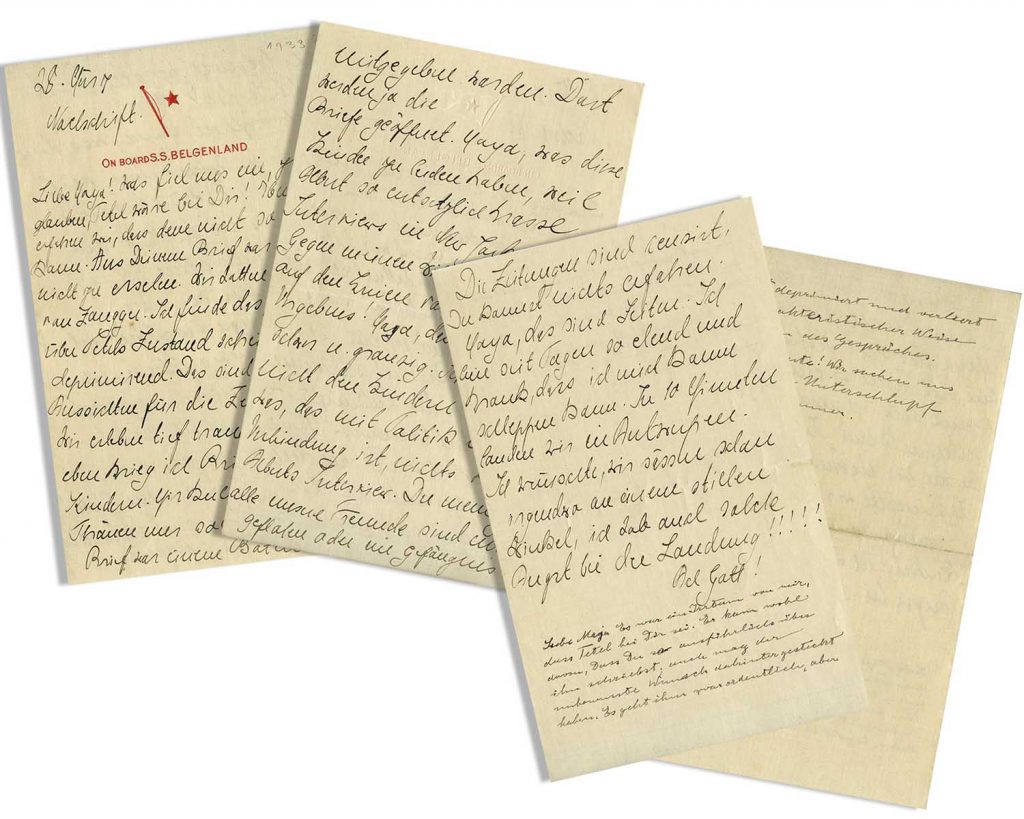 1933
28.
Nachschrift.
ON BOARD S.S. BELGENLAND
Liebe Maja! Was fiel uns ein, z
glauben, Tetel wäre bei Dir! Nun
erfahren wir, dass dem nicht so
Dann. Aus Deinem Brief war
nicht zu ersehen. Wir hatten
von Zangger. Ich finde das
über Tetels Zustand sehr
deprimirend. Das sind
Aussichten für die Z
Wir erleben tief trau
eben krieg ich Bri
Kindern. Mir
Thränen nur so
Brief war einem
mitgegeben worden. Dort
werden ja die
Briefe geöffnet. Maja, was diese
Kinder zu leiden haben, weil
Albert so entsetzlich krasse
Interviews in New York
Gegen meinen
auf den Knieen
Vergebens! Maja, das
schwer u. grausig.
nicht den Kindern
das mit Politik
Verbindung ist, nichts
Alberts Interview. Du
alle unsere Freunde sind
geflohen oder im Gefängnis
Die Zeitungen sind zensirt,
Du kannst nichts erfahren.
Maja, das sind Zeiten. Ich
bin seit Tagen so elend und
krank, dass ich mich kaum
schleppen kann. In 10 Minuten
landen wir in Antwerpen.
Ich wünschte, wir sässen schon
irgendwo an einem stillen
Winkel, ich hab auch solche
Angst bei der Landung!!!!!
Ach Gott!
Liebe Maja Es war ein Irrtum von mir,
dass Tetel bei Dir sei. Es kam wohl
davon, dass Du so ausführlich über
ihn schriebst, auch mag der
unbewusste Wunsch dahintergesteckt
haben. Es geht ihm zwar ordentlich, aber
deprimiert und verliert
charakteristischer Weise
des Gespräches.
Wir suchen uns
Unterschlupf